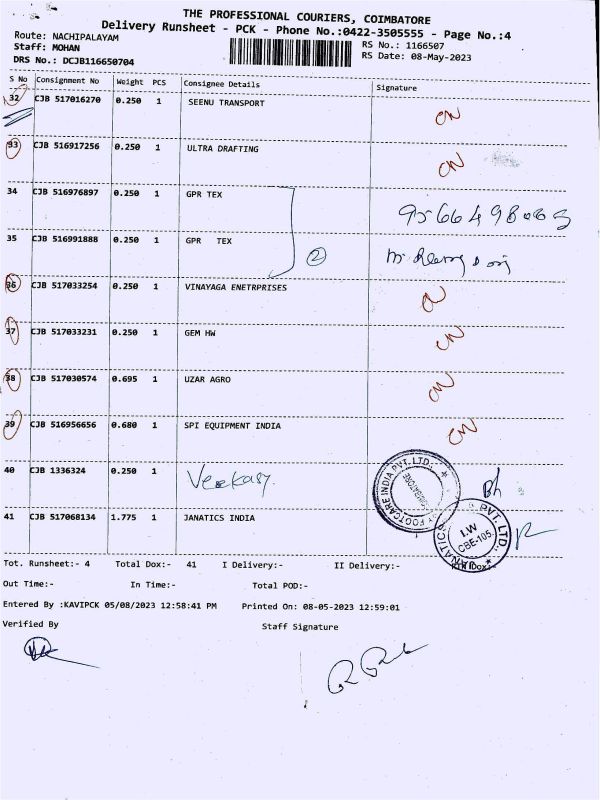 THE PROFESSIONAL COURIERS, COIMBATORE
Delivery Runsheet - PCK - Phone No.:0422-3505555 - Page No.:4
Route: NACHIPALAYAM RS No.: 1166507
Staff: MOHAN RS Date: 08-May-2023
DRS No.: DCJB116650704
S No Consignment No Weight PCS Consignee Details Signature
32 CJB 517016270 0.250 1 SEENU TRANSPORT
33 CJB 516917256 0.250 1 ULTRA DRAFTING
34 CJB 516976897 0.250 1 GPR TEX
35 CJB 516991888 0.250 1 GPR TEX 2
36 CJB 517033254 0.250 1 VINAYAGA ENETRPRISES
37 CJB 517033231 0.250 1 GEM HW
38 CJB 517030574 0.695 1 UZAR AGRO
39 CJB 516956656 0.680 1 SPI EQUIPMENT INDIA
40 CJB 1336324 0.250 1
FOOTCARE INDIA PVT. LTD. COIMBATORE
41 CJB 517068134 1.775 1 JANATICS INDIA
PVT. LTD. I.W CBE-105
Tot. Runsheet:- 4 Total Dox:- 41 I Delivery:- II Delivery:-
Out Time:- In Time:- Total POD:-
Entered By :KAVIPCK 05/08/2023 12:58:41 PM Printed On: 08-05-2023 12:59:01
Verified By Staff Signature